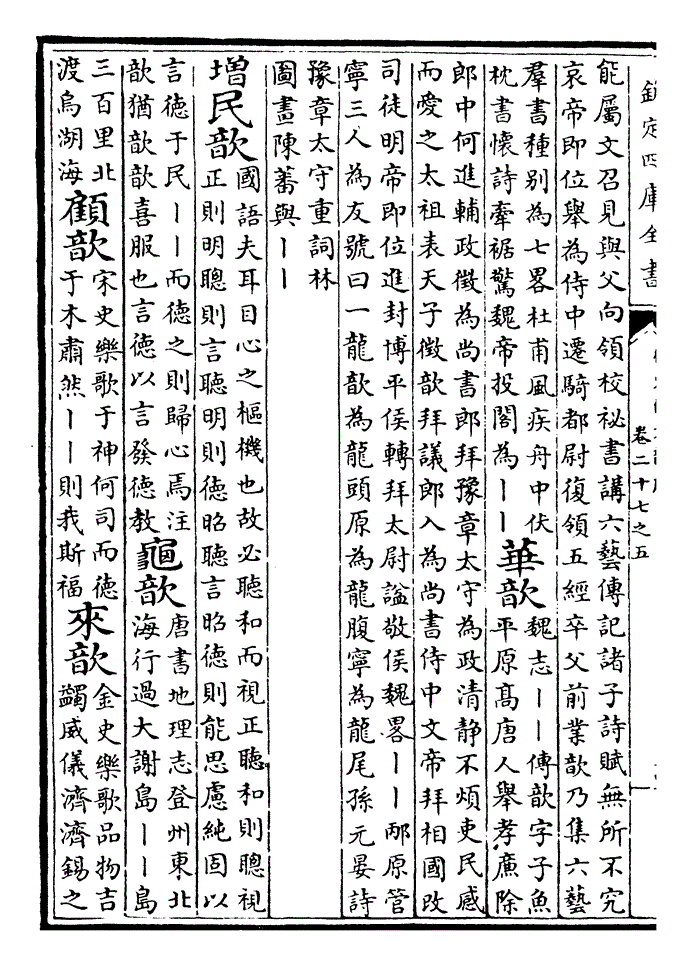 欽定四庫全書
卷二十七之五
能屬文召見與父向領校祕書講六藝傳記諸子詩賦無所不究
哀帝即位舉為侍中遷騎都尉復領五經卒父前業歆乃集六藝
羣書種别為七畧杜甫風疾舟中伏
枕書懷詩牽裾驚魏帝投閣為丨丨
華歆
魏志丨丨傳歆字子魚
平原髙唐人舉孝廉除
郎中何進輔政徵為尚書郎拜豫章太守為政清静不煩吏民感
而愛之太祖表天子徵歆拜議郎入為尚書侍中文帝拜相國改
司徒明帝即位進封博平侯轉拜太尉諡敬侯魏畧丨丨邴原管
寧三人為友號曰一龍歆為龍頭原為龍腹寧為龍尾孫元晏詩
豫章太守重詞林
圖畫陳蕃與丨丨
增民歆
國語夫耳目心之樞機也故必聽和而視正聽和則聰視
正則明聰則言聽明則徳昭聽言昭徳則能思慮純固以
言徳于民丨丨而徳之則歸心焉注
歆猶歆歆喜服也言徳以言發徳教
龜歆
唐書地理志登州東北
海行過大謝島丨丨島
三百里北
渡烏湖海
顧歆
宋史樂歌于神何司而徳
于木肅然丨丨則我斯福
來歆
金史樂歌品物吉
蠲威儀濟濟錫之